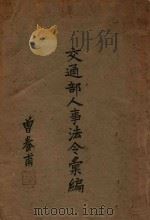 交通部人事法令彙編
曾養甫